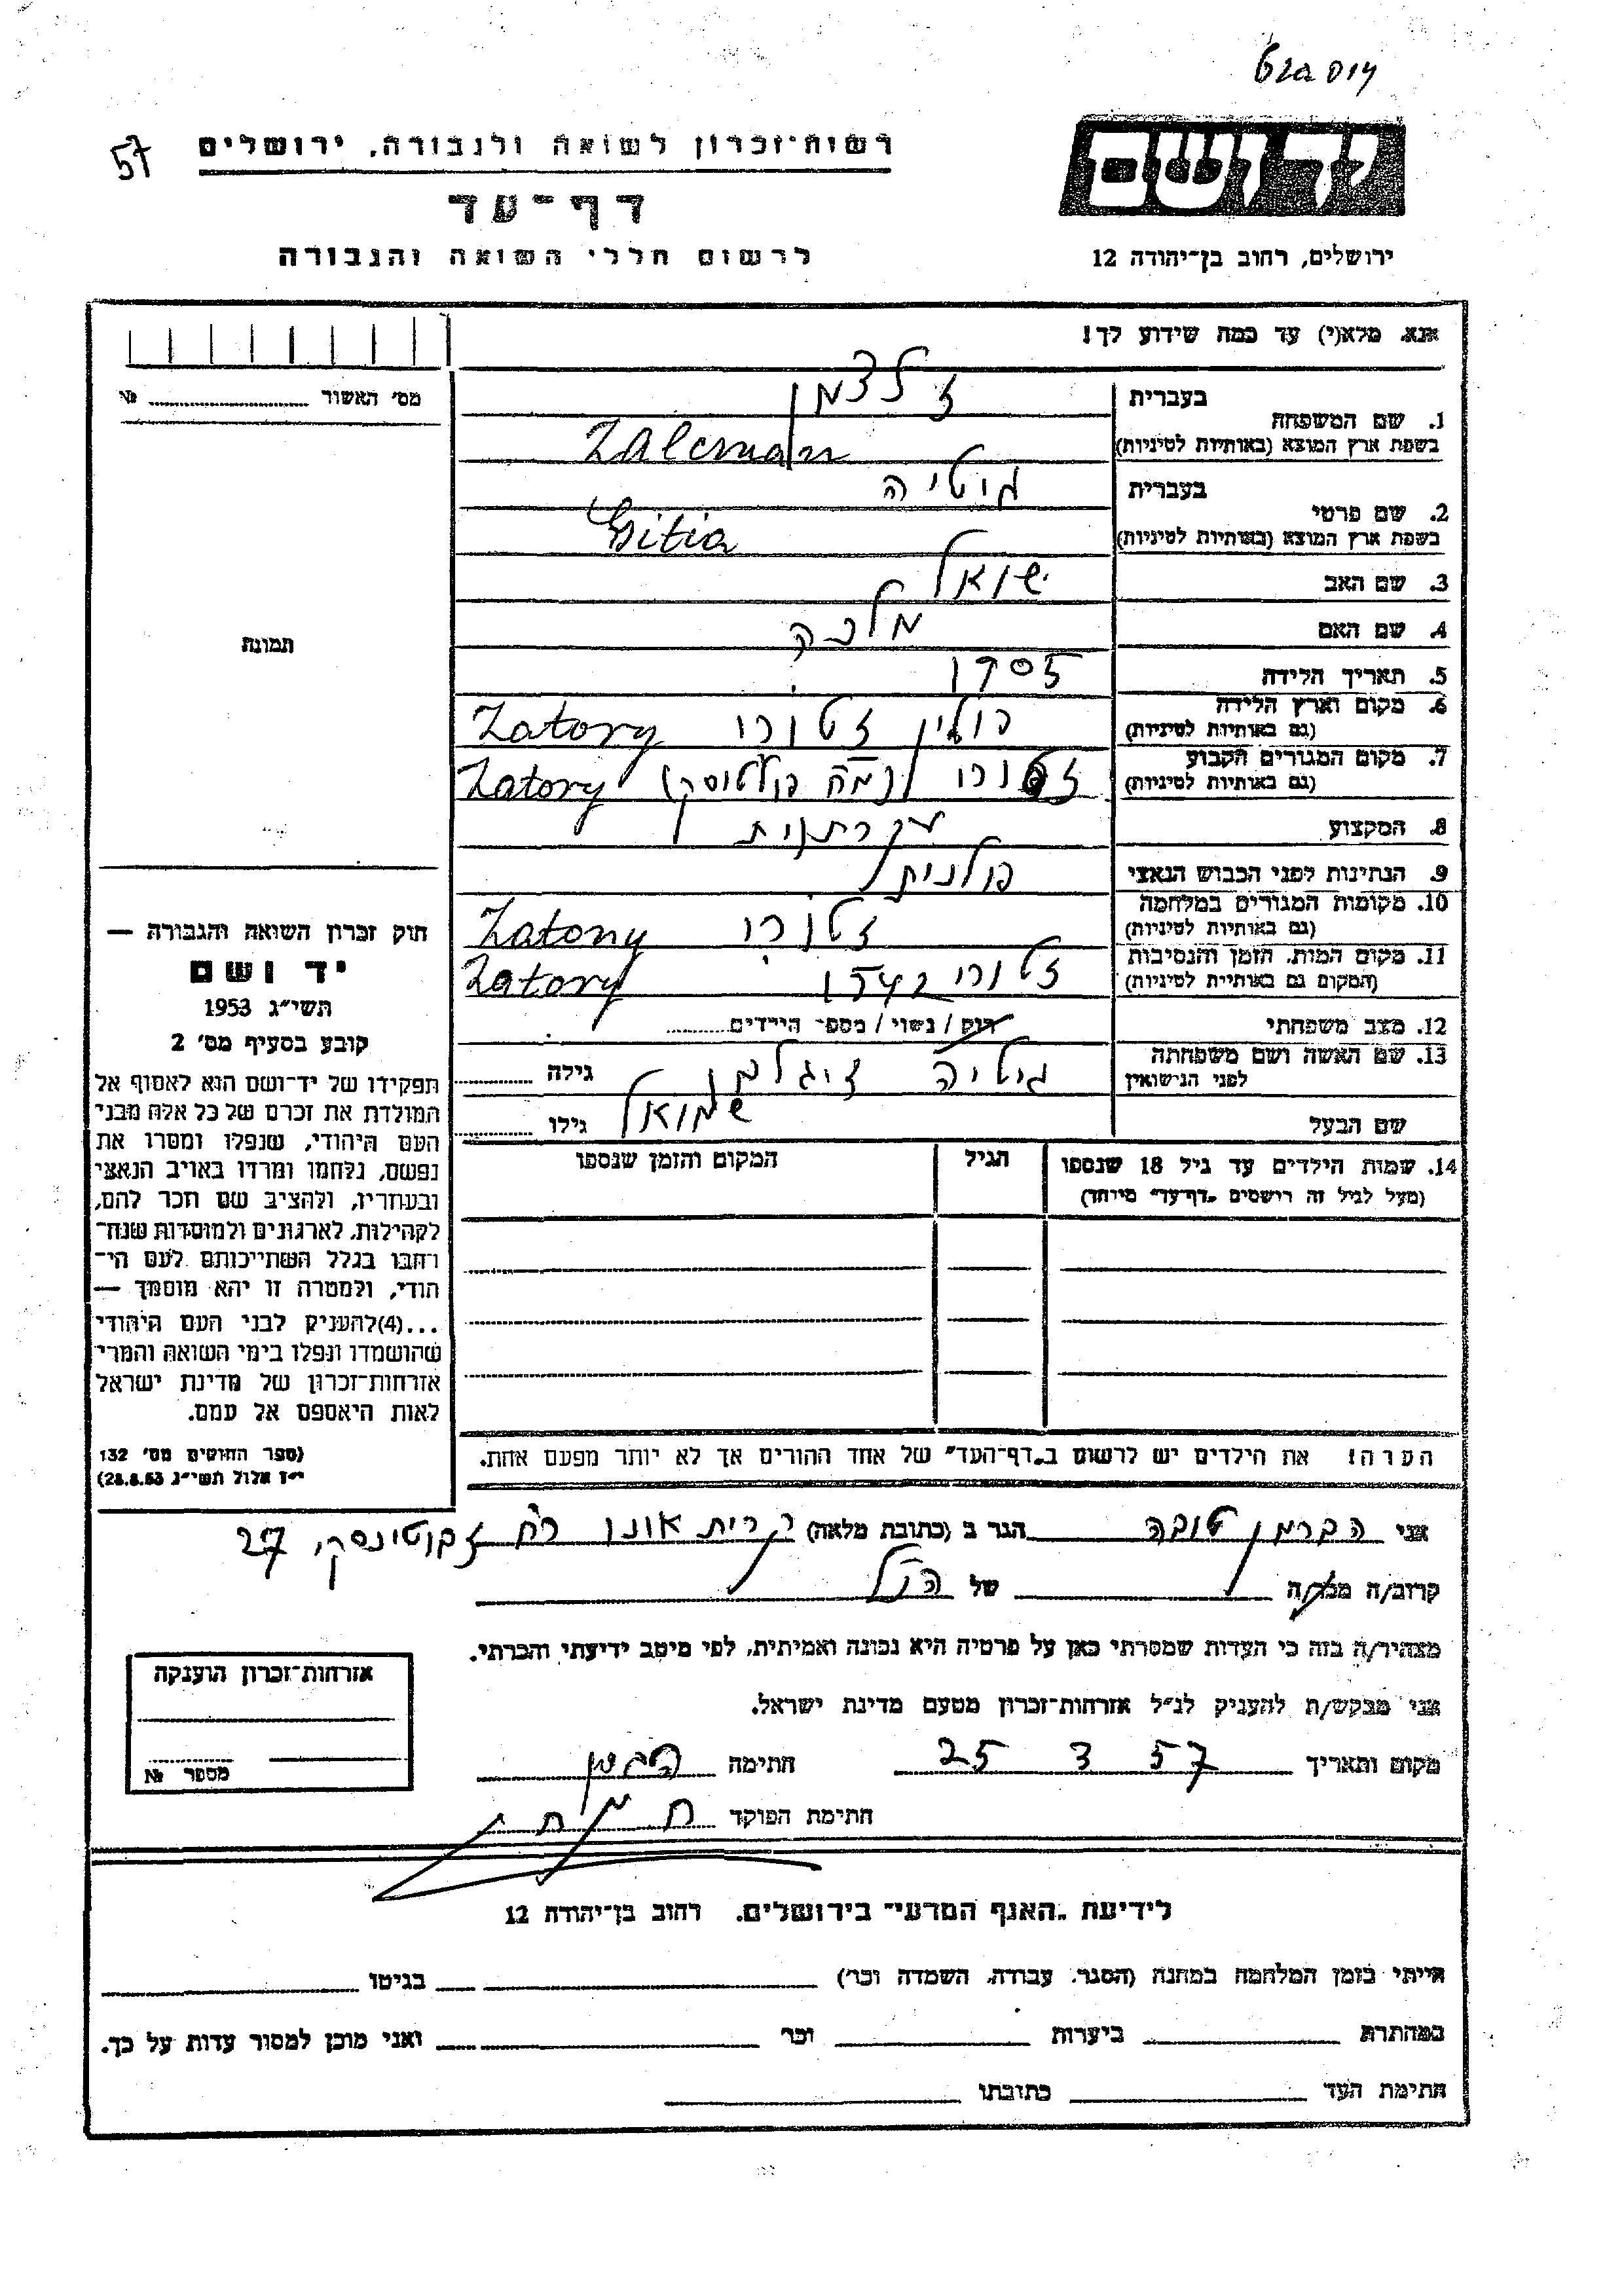 57
רשות־זכרון לשואה ולגבורה, ירושלים
דף־עד
לרשום חללי השואה והגבורה
יד ושם
ירושלים, רחוב בן־יהודה 12
אנא, מלא(י) עד כמה שידוע לך!
מס׳ האשור № 
1. שם המשפחה
בעברית זלצמן
בשפת ארץ המוצא (באותיות לטיניות) Zalcman
2. שם פרטי
בעברית גיטיה
בשפת ארץ המוצא (באותיות לטיניות) Gitia
3. שם האב
4. שם האם מלכה
5. תאריך הלידה 1905
6. מקום וארץ הלידה (גם באותיות לטיניות) פולין זטורי Zatory
7. מקום המגורים הקבוע (גם באותיות לטיניות) זטורי פולטוסק) Zatory
8. המקצוע עקרת בית
9. הנתינות לפני הכבוש הנאצי פולנית
10. מקומות המגורים במלחמה (גם באותיות לטיניות) זטורי Zatory
11. מקום המות, הזמן והנסיבות (המקום גם באותיות לטיניות) זטורי 1942 Zatory
12. מצב משפחתי רוק / נשוי / מספר הילדים
13. שם האשה ושם משפחתה לפני הנישואין גיטיה גילה
שם הבעל שמואל גילו
14. שמות הילדים עד גיל 18 שנספו
(מעל לגיל זה רושמים „דף־עד״ מיוחד)
הגיל
המקום והזמן שנספו
הערה! את הילדים יש לרשום ב„דף־העד״ של אחד ההורים אך לא יותר מפעם אחת.
תמונה
חוק זכרון השואה והגבורה —
יד ושם
תשי״ג 1953
קובע בסעיף מס׳ 2
תפקידו של יד־ושם הוא לאסוף אל
המולדת את זכרם של כל אלה מבני
העם היהודי, שנפלו ומסרו את
נפשם, נלחמו ומרדו באויב הנאצי
ובעוזריו, ולהציב שם וזכר להם,
לקהילות, לארגונים ולמוסדות שנח־
רבו בגלל השתייכותם לעם הי־
הודי, ולמטרה זו יהא מוסמך —
...(4)להעניק לבני העם היהודי
שהושמדו ונפלו בימי השואה והמרי
אזרחות־זכרון של מדינת ישראל
לאות היאספם אל עמם.
(ספר החוקים מס׳ 132
י״ז אלול תשי״ג 28.8.53)
אני הברמן טובה הגר ב (כתובת מלאה) קרית אונו רח ז׳בוטינסקי, 27
קרוב/ה מכר/ה של הנ״ל
מצהיר/ה בזה כי העדות שמסרתי כאן על פרטיה היא נכונה ואמיתית, לפי מיטב ידיעתי והכרתי.
אני מבקש/ת להעניק לנ״ל אזרחות־זכרון מטעם מדינת ישראל.
מקום ותאריך 25 3 57 חתימה הברמן
חתימת הפוקד
אזרחות־זכרון הוענקה
מספר №
לידיעת „האגף המדעי״ בירושלים, רחוב בן־יהודה 12
הייתי בזמן המלחמה במחנה (הסגר, עבודה, השמדה וכו׳) בגיטו
במחתרת ביערות וכו׳ ואני מוכן למסור עדות על כך.
חתימת העד כתובתו